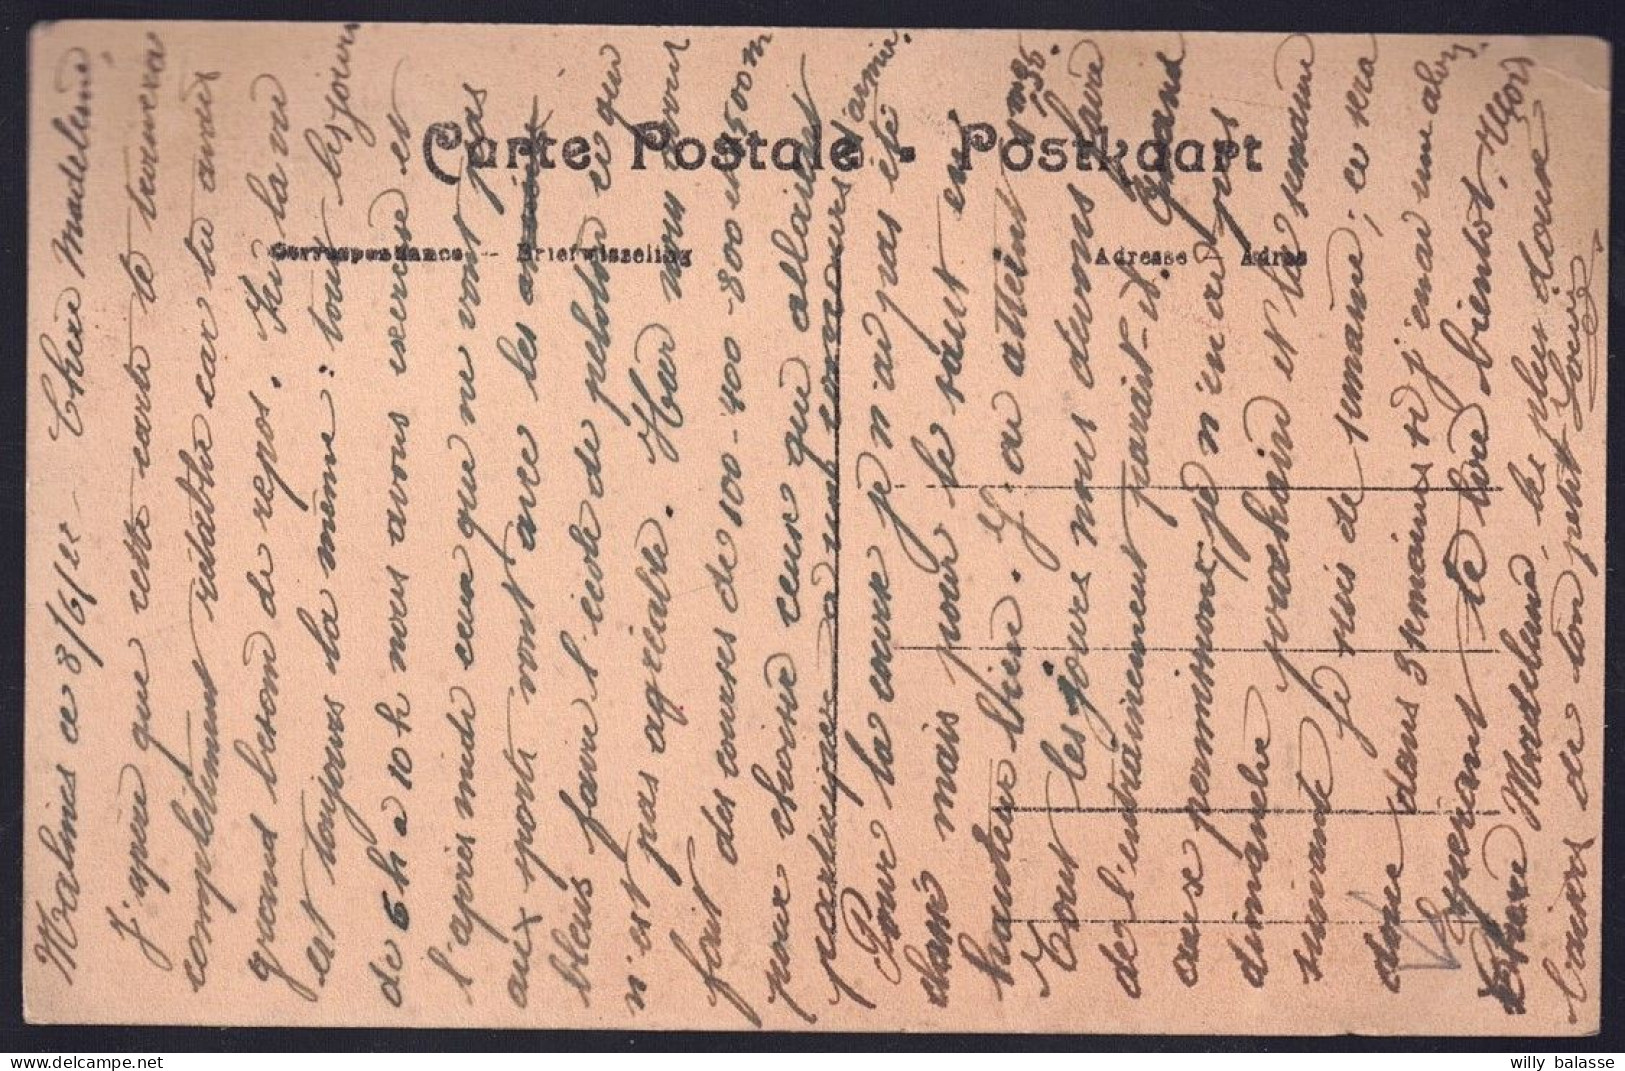 Malines ce 8/6/22 - Chère Madeleine
J'espère que cette carte te trouvera
complètement rétablie car tu avais
grand besoin de repos. Ici la vie
est toujours la même: tout les jours
de 6h à 10h nous avons exercice et
l'après midi ceux qui ne vont pas
aux sports vont avec les
bleus faire l'école de peloton ce qui
n'est pas agréable. Hier nous avons
fait des courses de 100-400-800 et 1500m
pour choisir ceux qui allaient
participer à un concours d'armée.
Pour la course je n'ai pas été
classé mais pour le saut en
hauteur bien. J'ai atteint 1m36.
Tout les jours nous devons faire
de l'entraînement parait-il. Quand
aux permissions, je n'en ai pas
dimanche prochain et la semaine
suivante je suis de semaine; ce sera
donc dans 3 semaines si j'en ai une alors.
Espérant te lire bientôt, reçois
Chère Madeleine, le plus doux
baiser de ton petit Louis
Carte Postale - Postkaart
Correspondance - Briefwisseling
Adresse - Adres
willy balasse